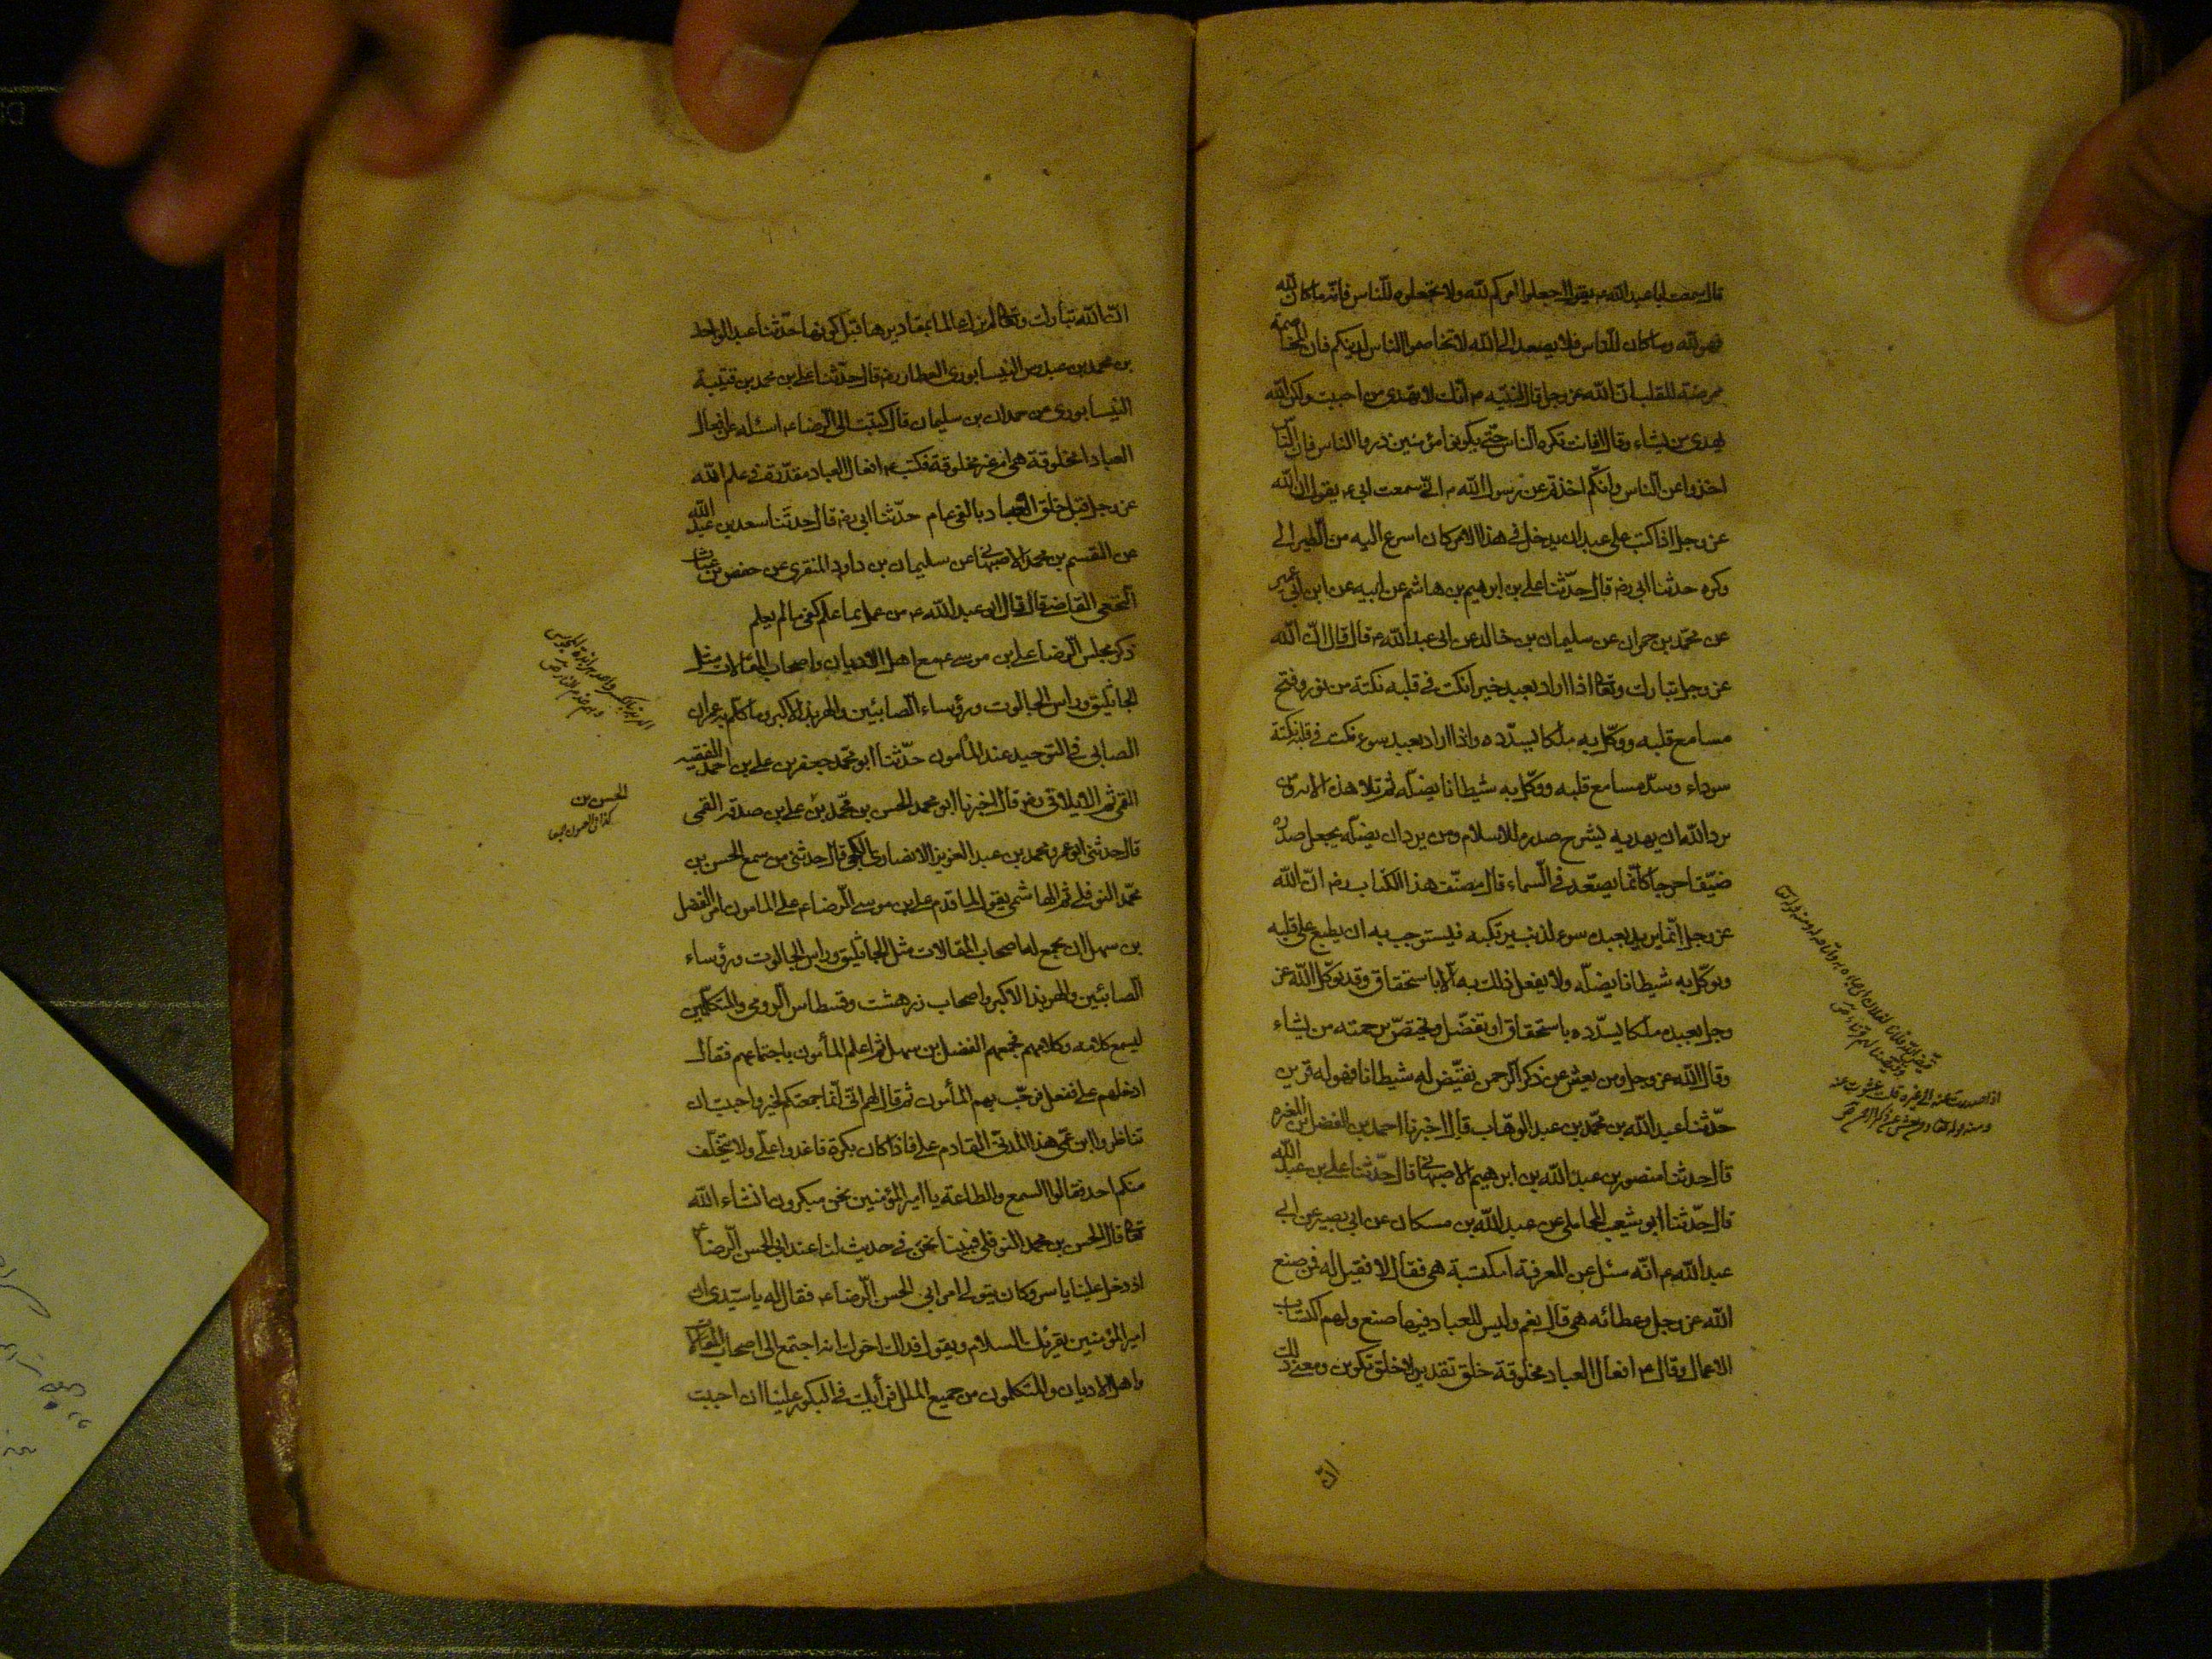 قال سمعت ابا عبد الله ع يقول اجعلوا امركم لله ولا تجعلوه للناس فانه ما كان لله
فهو لله وما كان للناس فلا يصعد الى الله لا تخاصموا الناس لدينكم فان المخاصمة
ممرضة للقلب ان الله عز وجل قال لنبيه ص انك لا تهدى من احببت ولكن الله
يهدى من يشاء وقال افانت تكره الناس حتى يكونوا مؤمنين ذروا الناس فان الناس
اخذوا عن الناس وانكم اخذتم عن رسول الله ص انى سمعت ابى ع يقول ان الله
عز وجل اذا كتب على عبد ان يدخل فى هذا الامر كان اسرع اليه من الطير الى
وكره حدثنا ابى رض قال حدثنا على بن ابرهيم بن هاشم عن ابيه عن ابن ابى عمير
عن محمد بن حمران عن سليمان بن خالد عن ابى عبد الله ع قال قال ان الله
عز وجل تبارك وتعالى اذا اراد بعبد خيرا نكت فى قلبه نكتة من نور وفتح
مسامع قلبه ووكل به ملكا يسدده واذا اراد بعبد سوء نكت فى قلبه نكتة
سوداء وسد مسامع قلبه ووكل به شيطانا يضله ثم تلا هذه الاية فمن
يرد الله ان يهديه يشرح صدره للاسلام ومن يرد ان يضله يجعل صدره
ضيقا حرجا كانما يصعد فى السماء قال مصنف هذا الكتاب رض ان الله
عز وجل انما يريد بعبده سوء لذنب يرتكبه فيستوجب به ان يطبع على قلبه
ويوكل به شيطانا يضله ولا يفعل ذلك به الا باستحقاق وقد يوكل الله عز
وجل بعبده ملكا يسدده باستحقاق او تفضل ويختص برحمته من يشاء
وقال الله عز وجل ومن يعش عن ذكر الرحمن نقيض له شيطانا فهو له قرين
حدثنا عبد الله بن محمد بن عبد الوهاب قال اخبرنا احمد بن الفضل بن المغيرة
قال حدثنا منصور بن عبد الله بن ابرهيم الاصبهانى قال حدثنا على بن عبد الله
قال حدثنا ابو شعيب المحاملى عن عبد الله بن مسكان عن ابى بصير عن ابى
عبد الله ع انه سئل عن المعرفة امكتسبة هى فقال لا فقيل له فمن صنع
الله عز وجل وعطائه هى قال نعم وليس للعباد فيها صنع ولهم اكتساب
الاعمال وقال ع افعال العباد مخلوقة خلق تقدير لا خلق تكوين ومعنى ذلك
ان
ان الله تبارك وتعالى لم يزل عالما بمقاديرها قبل كونها حدثنا عبد الواحد
بن محمد بن عبدوس النيسابورى العطار رض قال حدثنا على بن محمد بن قتيبة
النيسابورى عن حمدان بن سليمان قال كتبت الى الرضا ع اسئله عن افعال
العباد امخلوقة هى ام غير مخلوقة فكتب ع افعال العباد مقدرة فى علم الله
عز وجل قبل خلق العباد بالفى عام حدثنا ابى رض قال حدثنا سعد بن عبد الله
عن القسم بن محمد الاصبهانى عن سليمان بن داود المنقرى عن حفص بن غياث
النخعى القاضى قال قال ابى عبد الله ع من عمل بما علم كفى ما لم يعلم
ذكر مجلس الرضا على بن موسى ع مع اهل الاديان واصحاب المقالات مثل
الجاثليق وراس الجالوت ورؤساء الصابئين والهربذ الاكبر وما كلم به عمران
الصابى فى التوحيد عند المأمون حدثنا ابو محمد جعفر بن على بن احمد الفقيه
القمى ثم الايلاقى رض قال اخبرنا ابو محمد الحسن بن محمد بن على بن صدقه القمى
قال حدثنى ابو عمرو محمد بن عبد العزيز الانصارى الكجى قال حدثنى من سمع الحسن بن
محمد النوفلى ثم الهاشمى يقول لما قدم على بن موسى الرضا ع على المامون امر الفضل
بن سهل ان يجمع له اصحاب المقالات مثل الجاثليق وراس الجالوت ورؤساء
الصابئين والهربذ الاكبر واصحاب زرهشت وقسطاس الرومى والمتكلمين
ليسمع كلامه وكلامهم فجمعهم الفضل بن سهل ثم اعلم المأمون باجتماعهم فقال
ادخلهم على ففعل فرحب بهم المأمون ثم قال لهم انى انما جمعتكم لخير واحببت ان
تناظروا ابن عمى هذا المدنى القادم على فاذا كان بكرة فاغدوا على ولا يتخلف
منكم احد فقالوا السمع والطاعة يا امير المؤمنين نحن مبكرون ان شاء الله
تعالى قال الحسن بن محمد النوفلى فبينا نحن فى حديث لنا عند ابى الحسن الرضا ع
اذ دخل علينا ياسر وكان يتولى امر ابى الحسن الرضا ع فقال له يا سيدى ان
امير المؤمنين يقرئك السلام ويقول فداك اخوك انه اجتمع الى اصحاب المقالات
واهل الاديان والمتكلمون من جميع الملل فرأيك فى البكور علينا ان احببت
الحسن بن